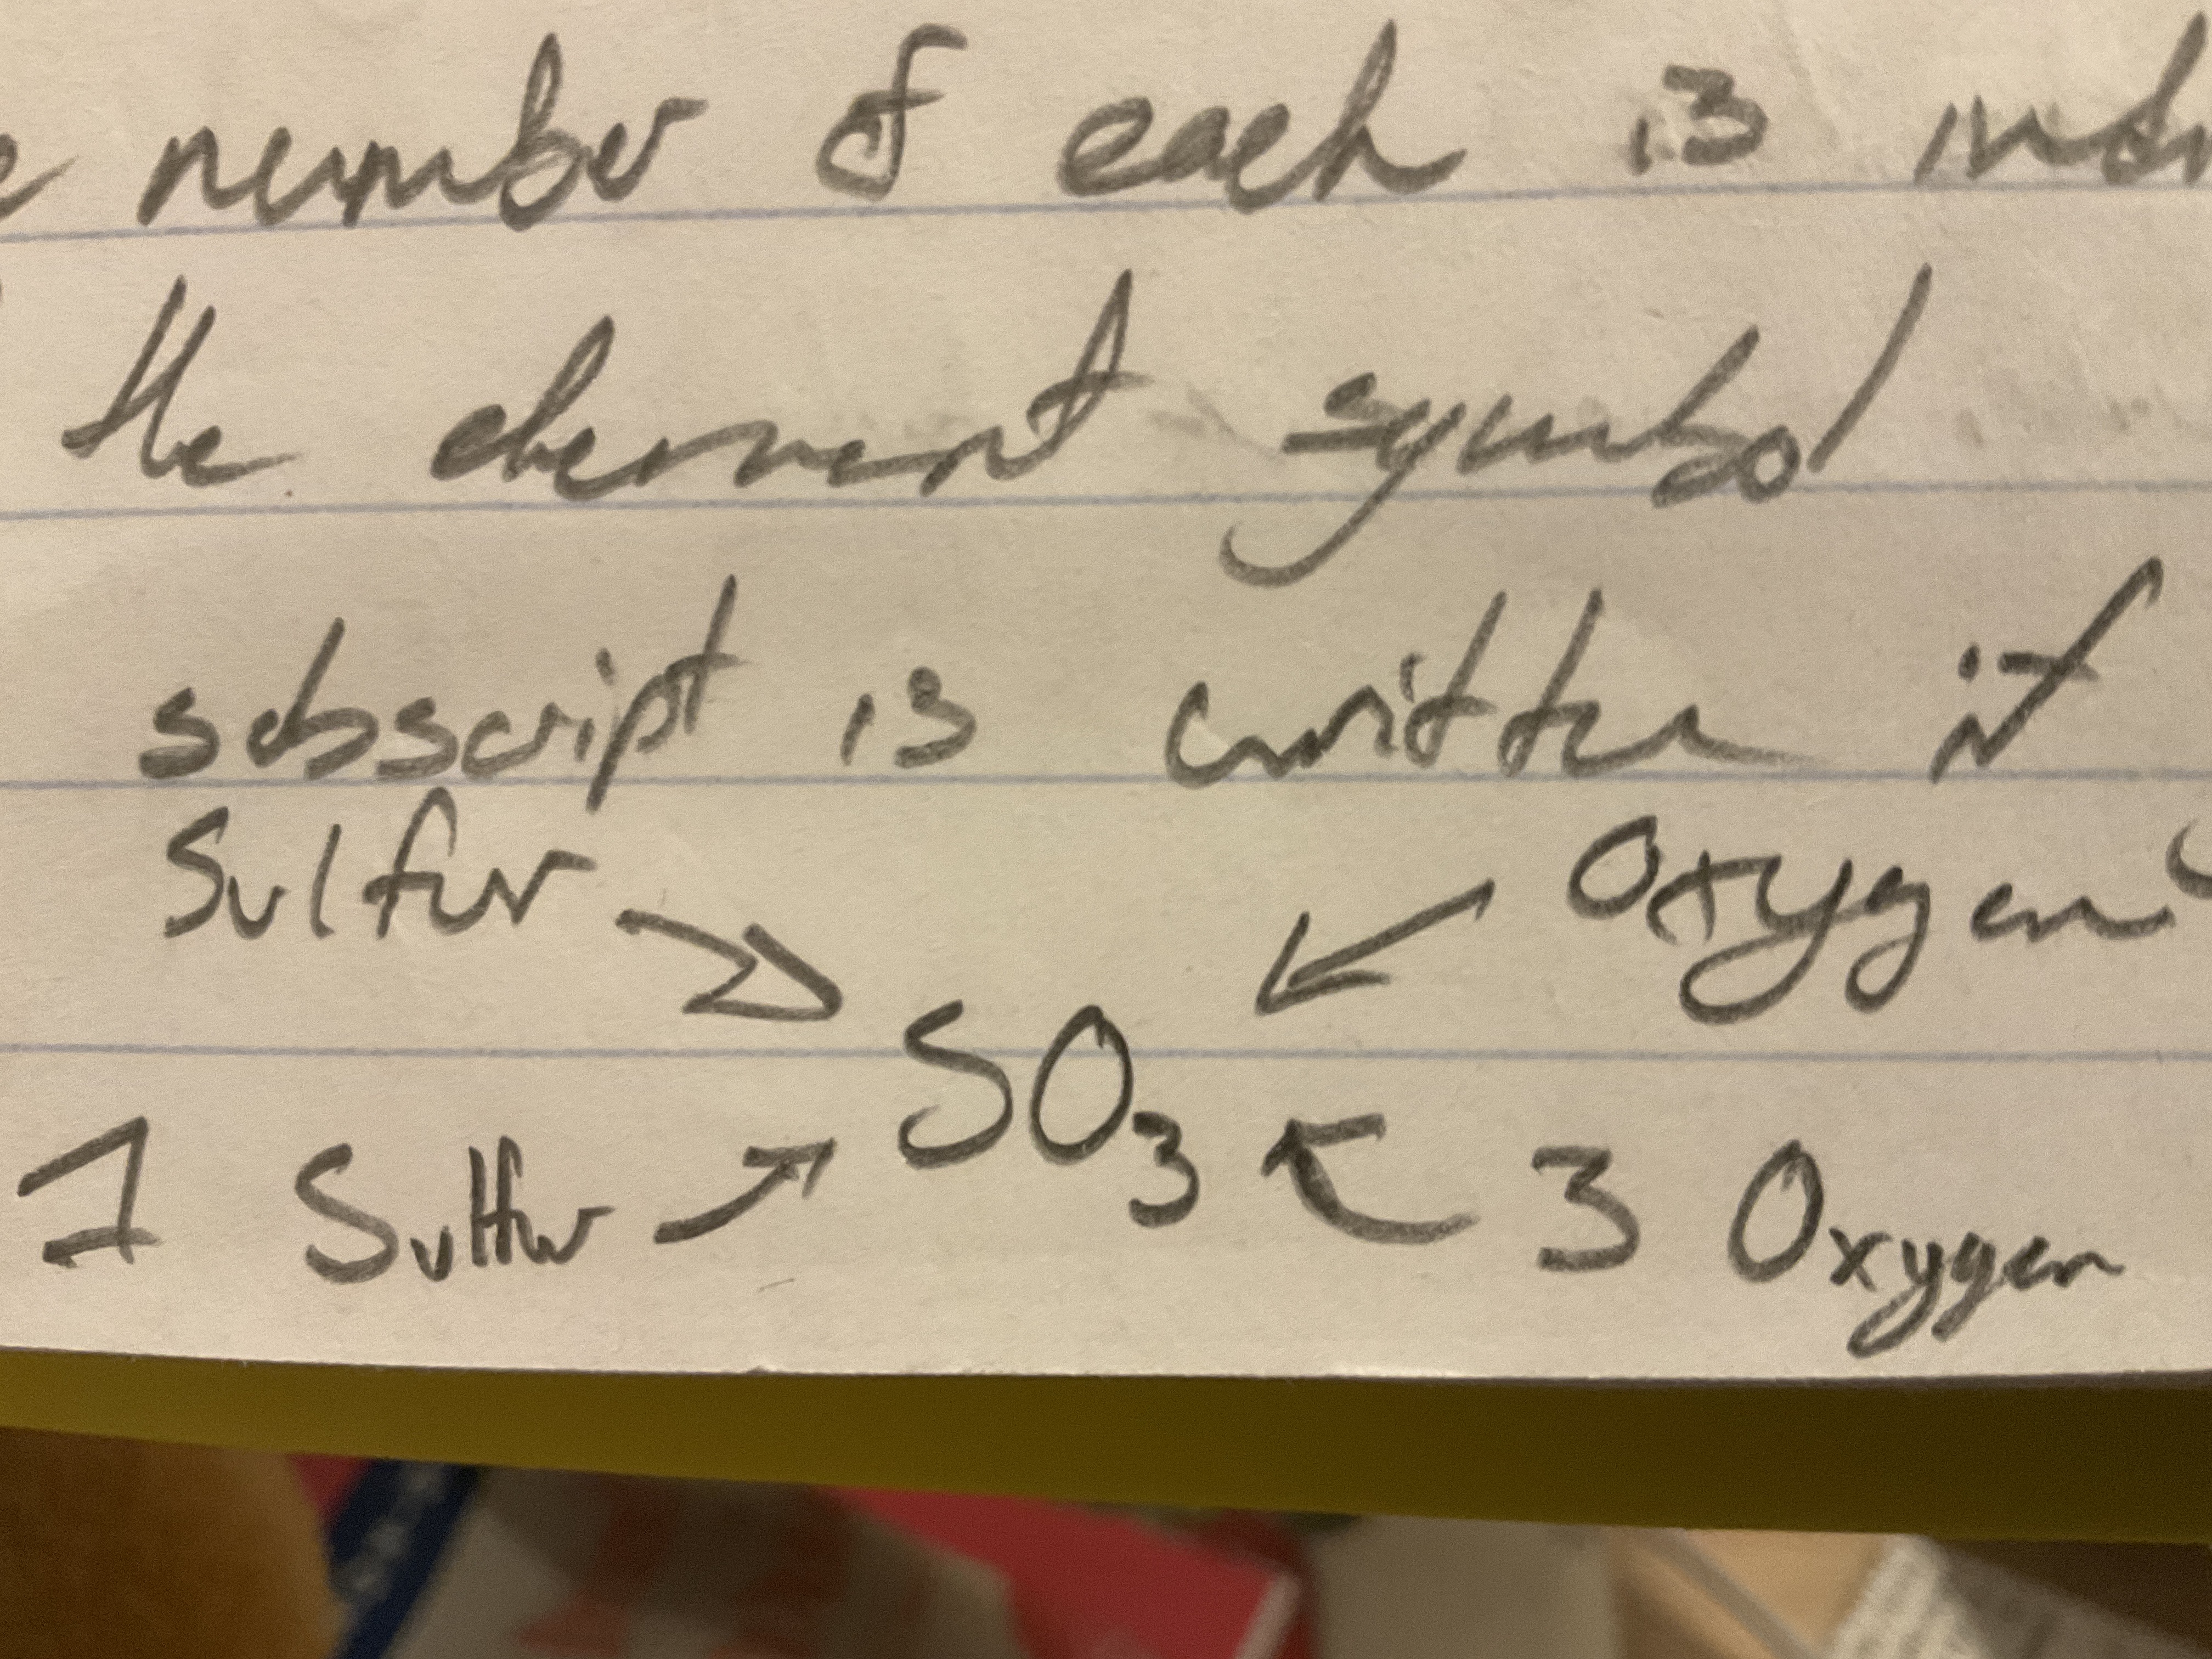 number of each is
the element symbol
subscript is written it
Sulfur Oxygen
SO₃
1 Sulfur 3 Oxygen